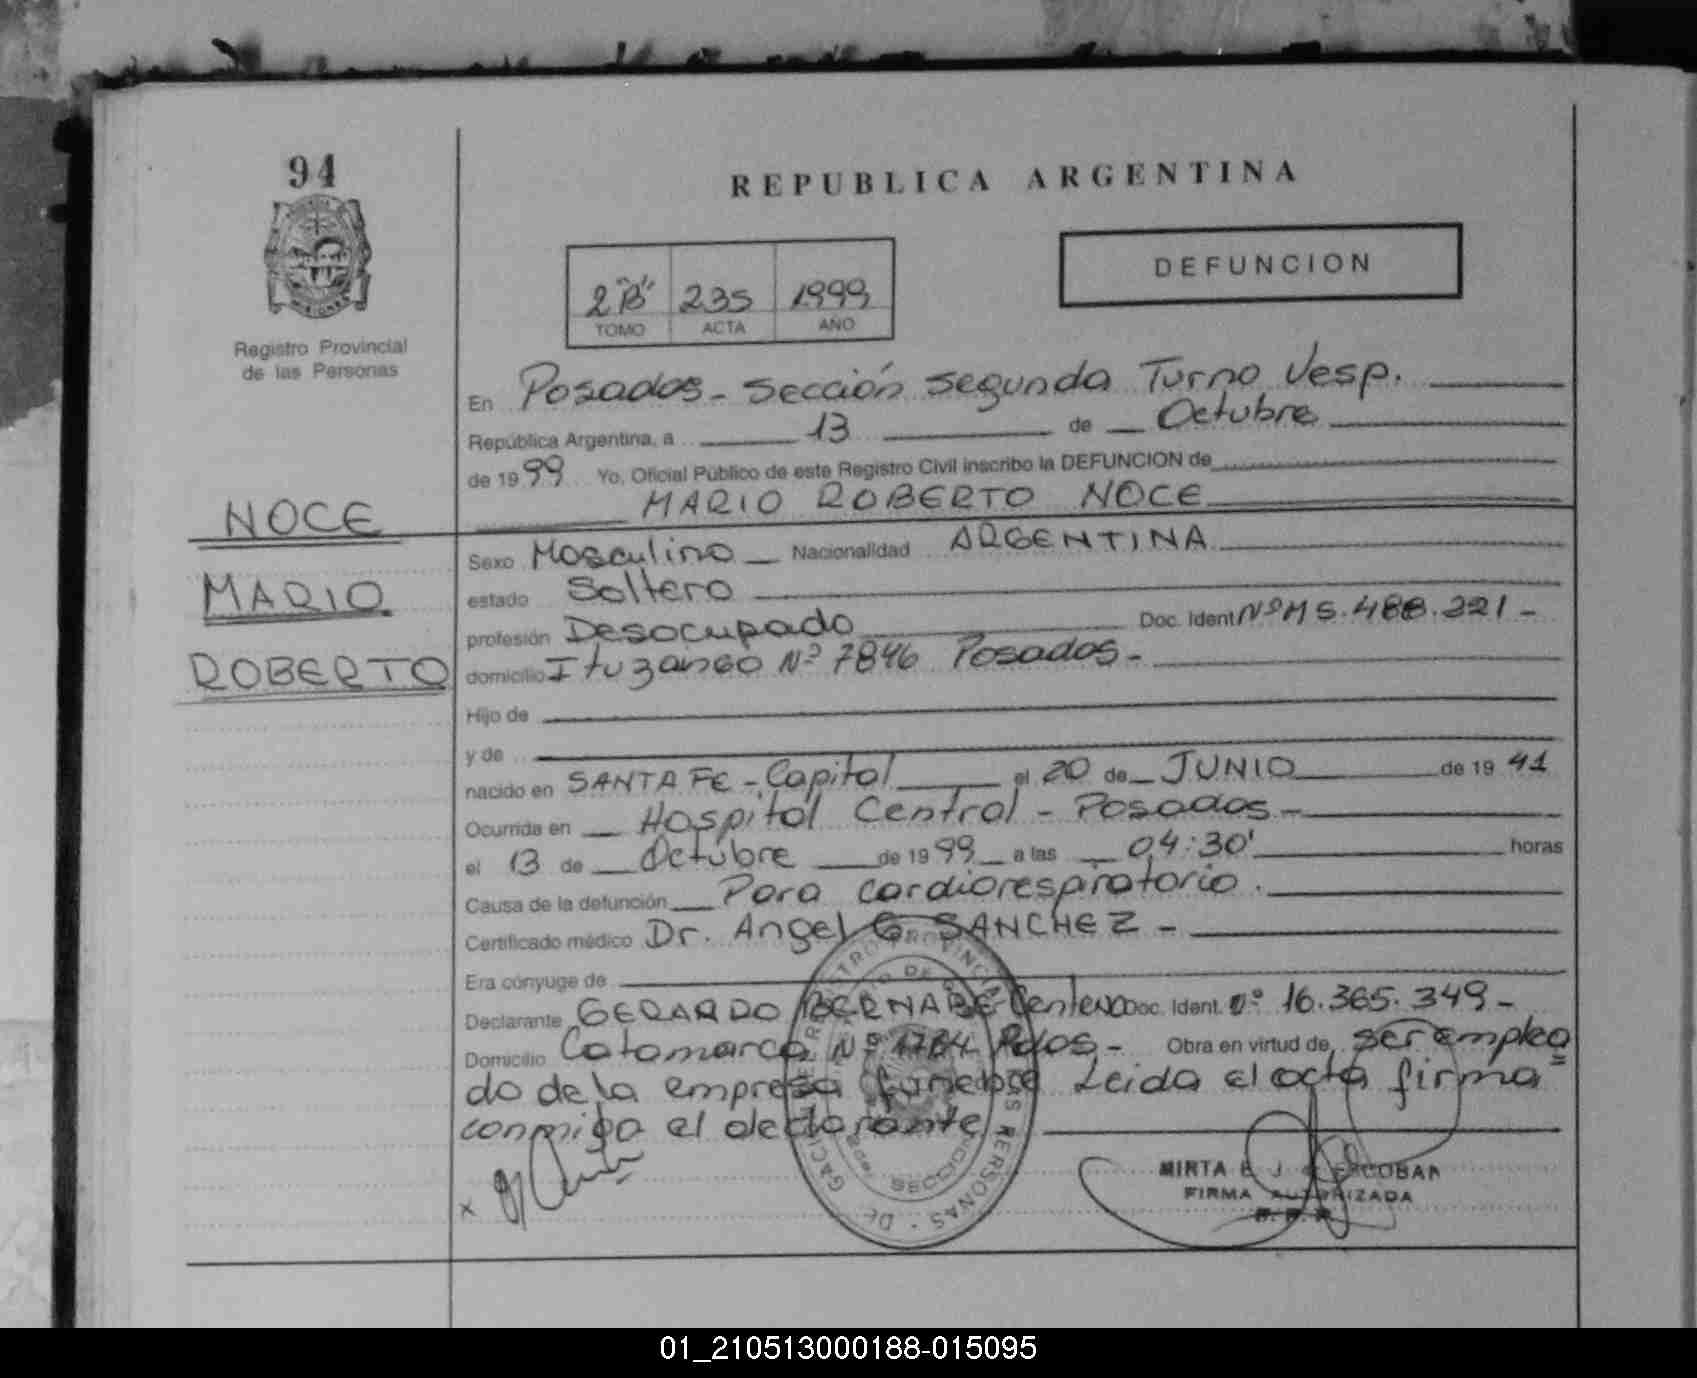 94
REPUBLICA ARGENTINA
DEFUNCION
2"B" 235 1999
TOMO ACTA AÑO
Registro Provincial
de las Personas
En Posadas - Sección Segunda Turno Vesp.
República Argentina, a 13 de Octubre
de 1999 Yo, Oficial Público de este Registro Civil inscribo la DEFUNCION de
MARIO ROBERTO NOCE
NOCE
MARIO
ROBERTO
Sexo Masculino Nacionalidad ARGENTINA
estado Soltero
profesión Desocupado Doc. Ident Nº M 5.488.221 -
domicilio Ituzango Nº 7846 Posadas -
Hijo de
y de
nacido en SANTA FE - Capital el 20 de JUNIO de 19 41
Ocurrida en Hospital Central - Posadas -
el 13 de Octubre de 1999 a las 04:30' horas
Causa de la defunción Paro cardiorespiratorio.
Certificado médico Dr. Angel G. SANCHEZ -
Era cónyuge de
Declarante GERARDO BERNABE Centeno Doc. Ident. nº 16.365.349 -
Domicilio Catamarca Nº 1784 Pdas - Obra en virtud de ser emplea=
do de la empresa funebre Leida el acta firma
conmigo el declarante
x
MIRTA E J de ESCOBAR
FIRMA AUTORIZADA
01_210513000188-015095